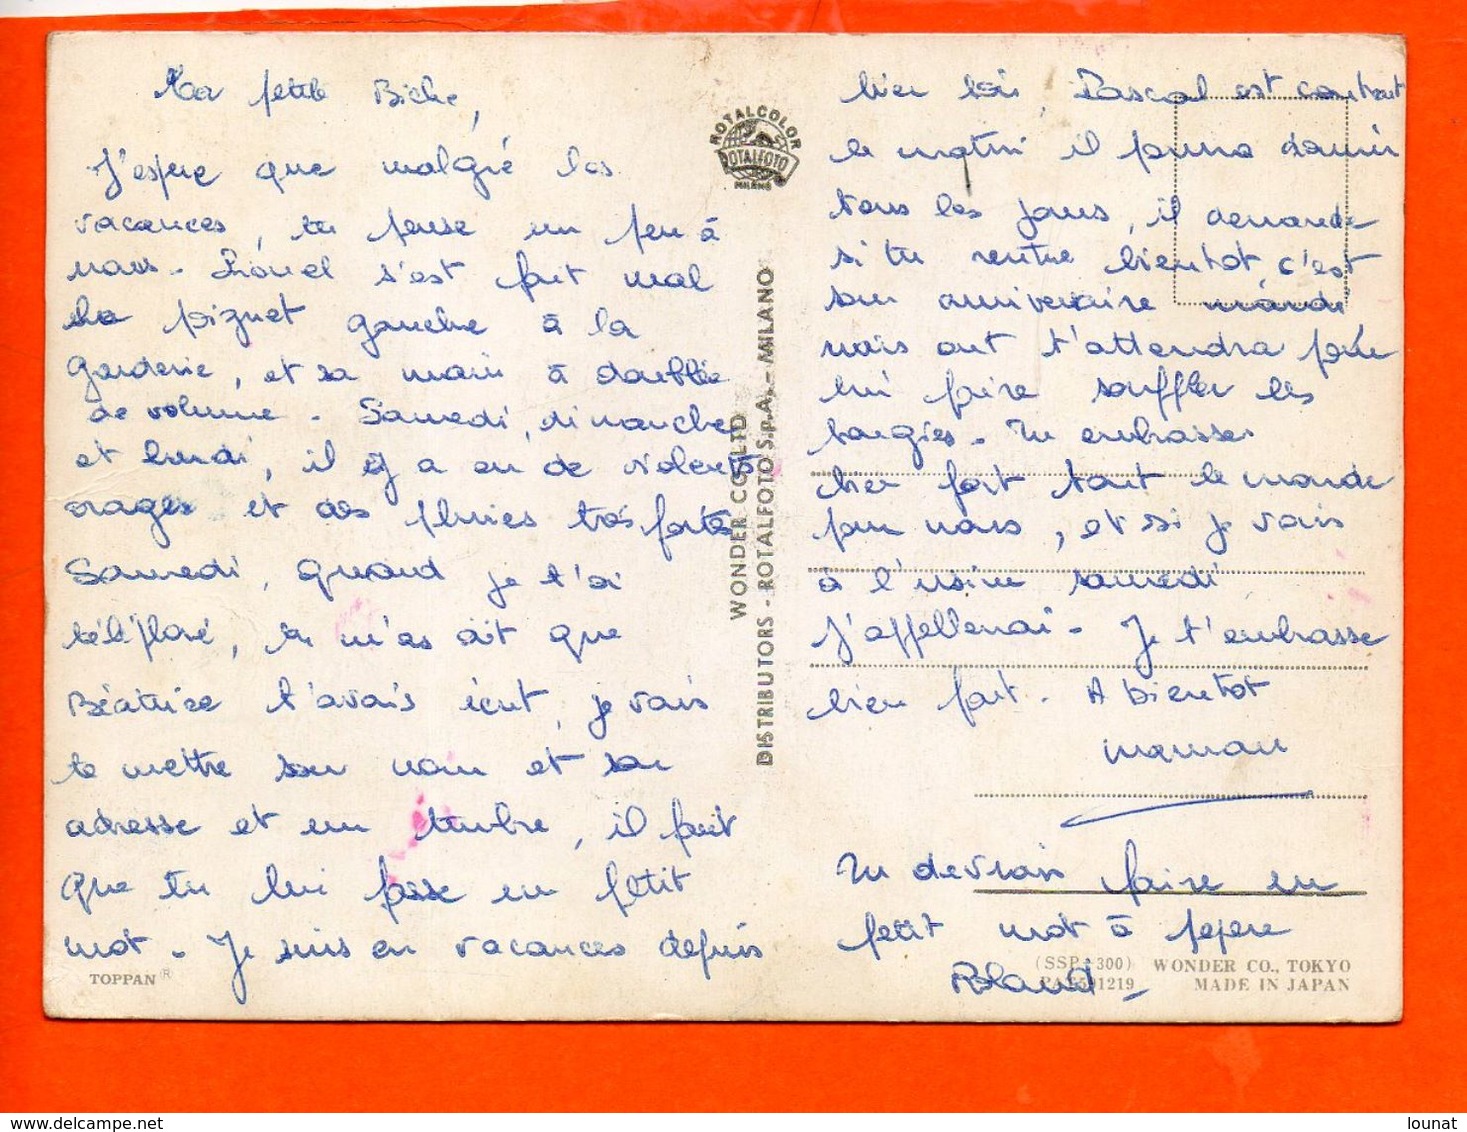 Ma petite Biche,
J'espere que malgré les
vacances, tu pense un peu à
nous. Lionel s'est fait mal
le pignet gauche à la
garderie, et sa main à doublée
de volume. Samedi, dimanche,
et lundi, il y a eu de violents
orages et des pluies très fortes
Samedi, quand je t'ai
téléphoné, tu m'as dit que
Béatrice t'avais écrit, je vais
te mettre son nom et son
adresse et un timbre, il faut
que tu lui fasse un petit
mot. Je suis en vacances depuis
hier soir, Pascal est content
le matin il pourra dormir
tous les jours, il demande
si tu rentre bientot, c'est
son anniversaire mardi
mais ont t'attendra pour
lui faire souffler les
bougies. Tu embrasses
bien fort tout le monde
pour nous, et si je vais
à l'usine samedi
j'appellerai. Je t'embrasse
bien fort. A bientot
maman
Tu devrais faire un
petit mot à pepere
Roland
ROTALCOLOR
ROTALFOTO
MILANO
WONDER CO. LTD
DISTRIBUTORS - ROTALFOTO S.p.A. - MILANO
TOPPAN®
(SSP-300) WONDER CO., TOKYO
PAT591219 MADE IN JAPAN
© delcampe.net
lounat